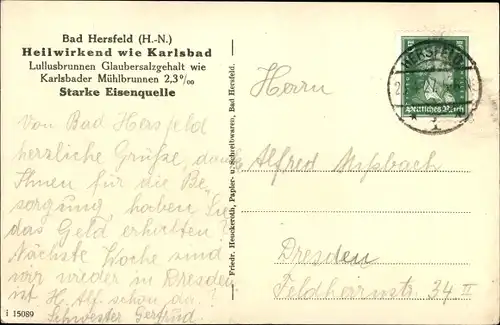 Bad Hersfeld (H.-N.)
Heilwirkend wie Karlsbad
Lullusbrunnen Glaubersalzgehalt wie
Karlsbader Mühlbrunnen 2,3⁰/₀₀
Starke Eisenquelle
Von Bad Hersfeld
herzliche Grüße, danke
Ihnen für die Be
sorgung haben Sie
das Geld erhalten?
Nächste Woche sind
wir wieder in Dresden
ist H. Alf. schon da?
Schwester Gertrud.
i 15089
Friedr. Heuckeroth, Papier- u. Schreibwaren, Bad Hersfeld.
HERSFELD
Deutsches Reich
Herrn
Alfred
Dresden
Feldherrnstr. 34 II